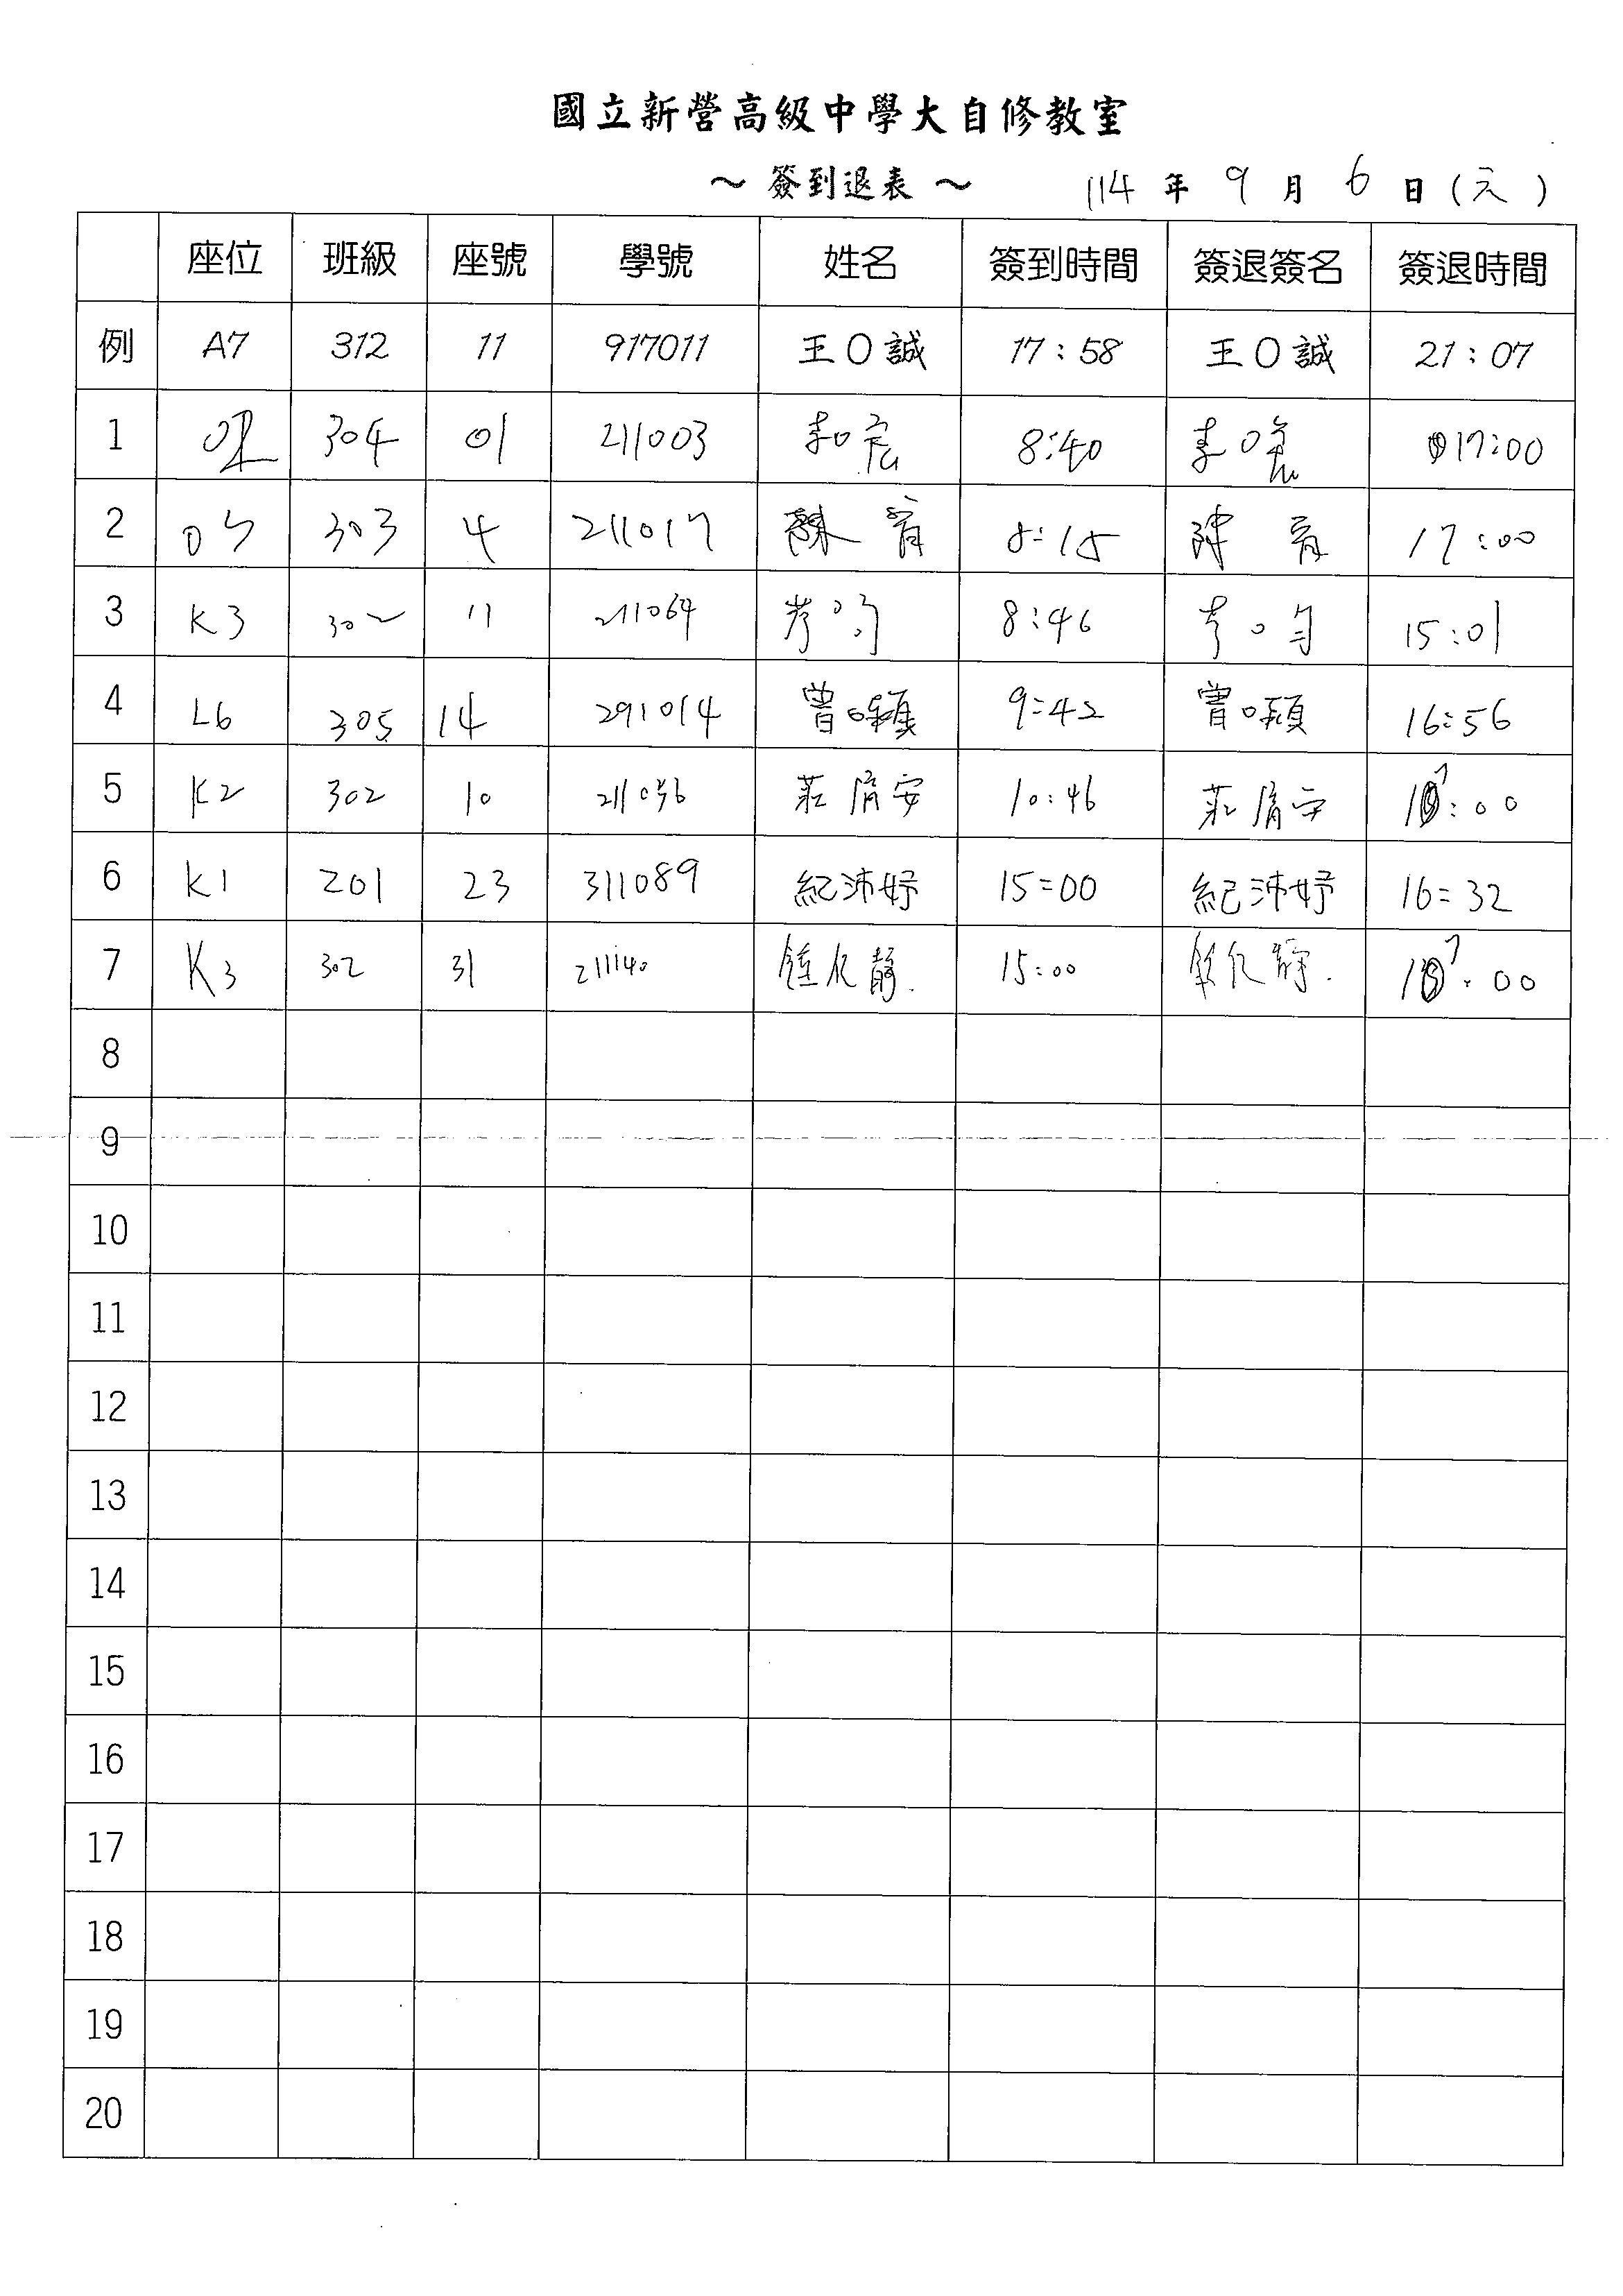 國立新營高級中學大自修教室
～ 簽到退表 ～ 114 年 9 月 6 日 ( )
座位 班級 座號 學號 姓名 簽到時間 簽退簽名 簽退時間
例 A7 312 11 917011 王O誠 17:58 王O誠 21:07
1 304 01 211003 李O宏 8:40 李O 17:00
2 303 4 211017 陳 育 8:15 陳 育 17:00
3 K3 302 11 211064 李O昀 8:46 李O 15:01
4 L6 305 14 291014 曾O穎 9:42 曾O穎 16:56
5 K2 302 10 莊 安 10:46 莊 安 17:00
6 K1 201 23 311089 紀沛妤 15:00 紀沛妤 16:32
7 K3 302 31 211140 靜 15:00 靜 17:00
8
9
10
11
12
13
14
15
16
17
18
19
20